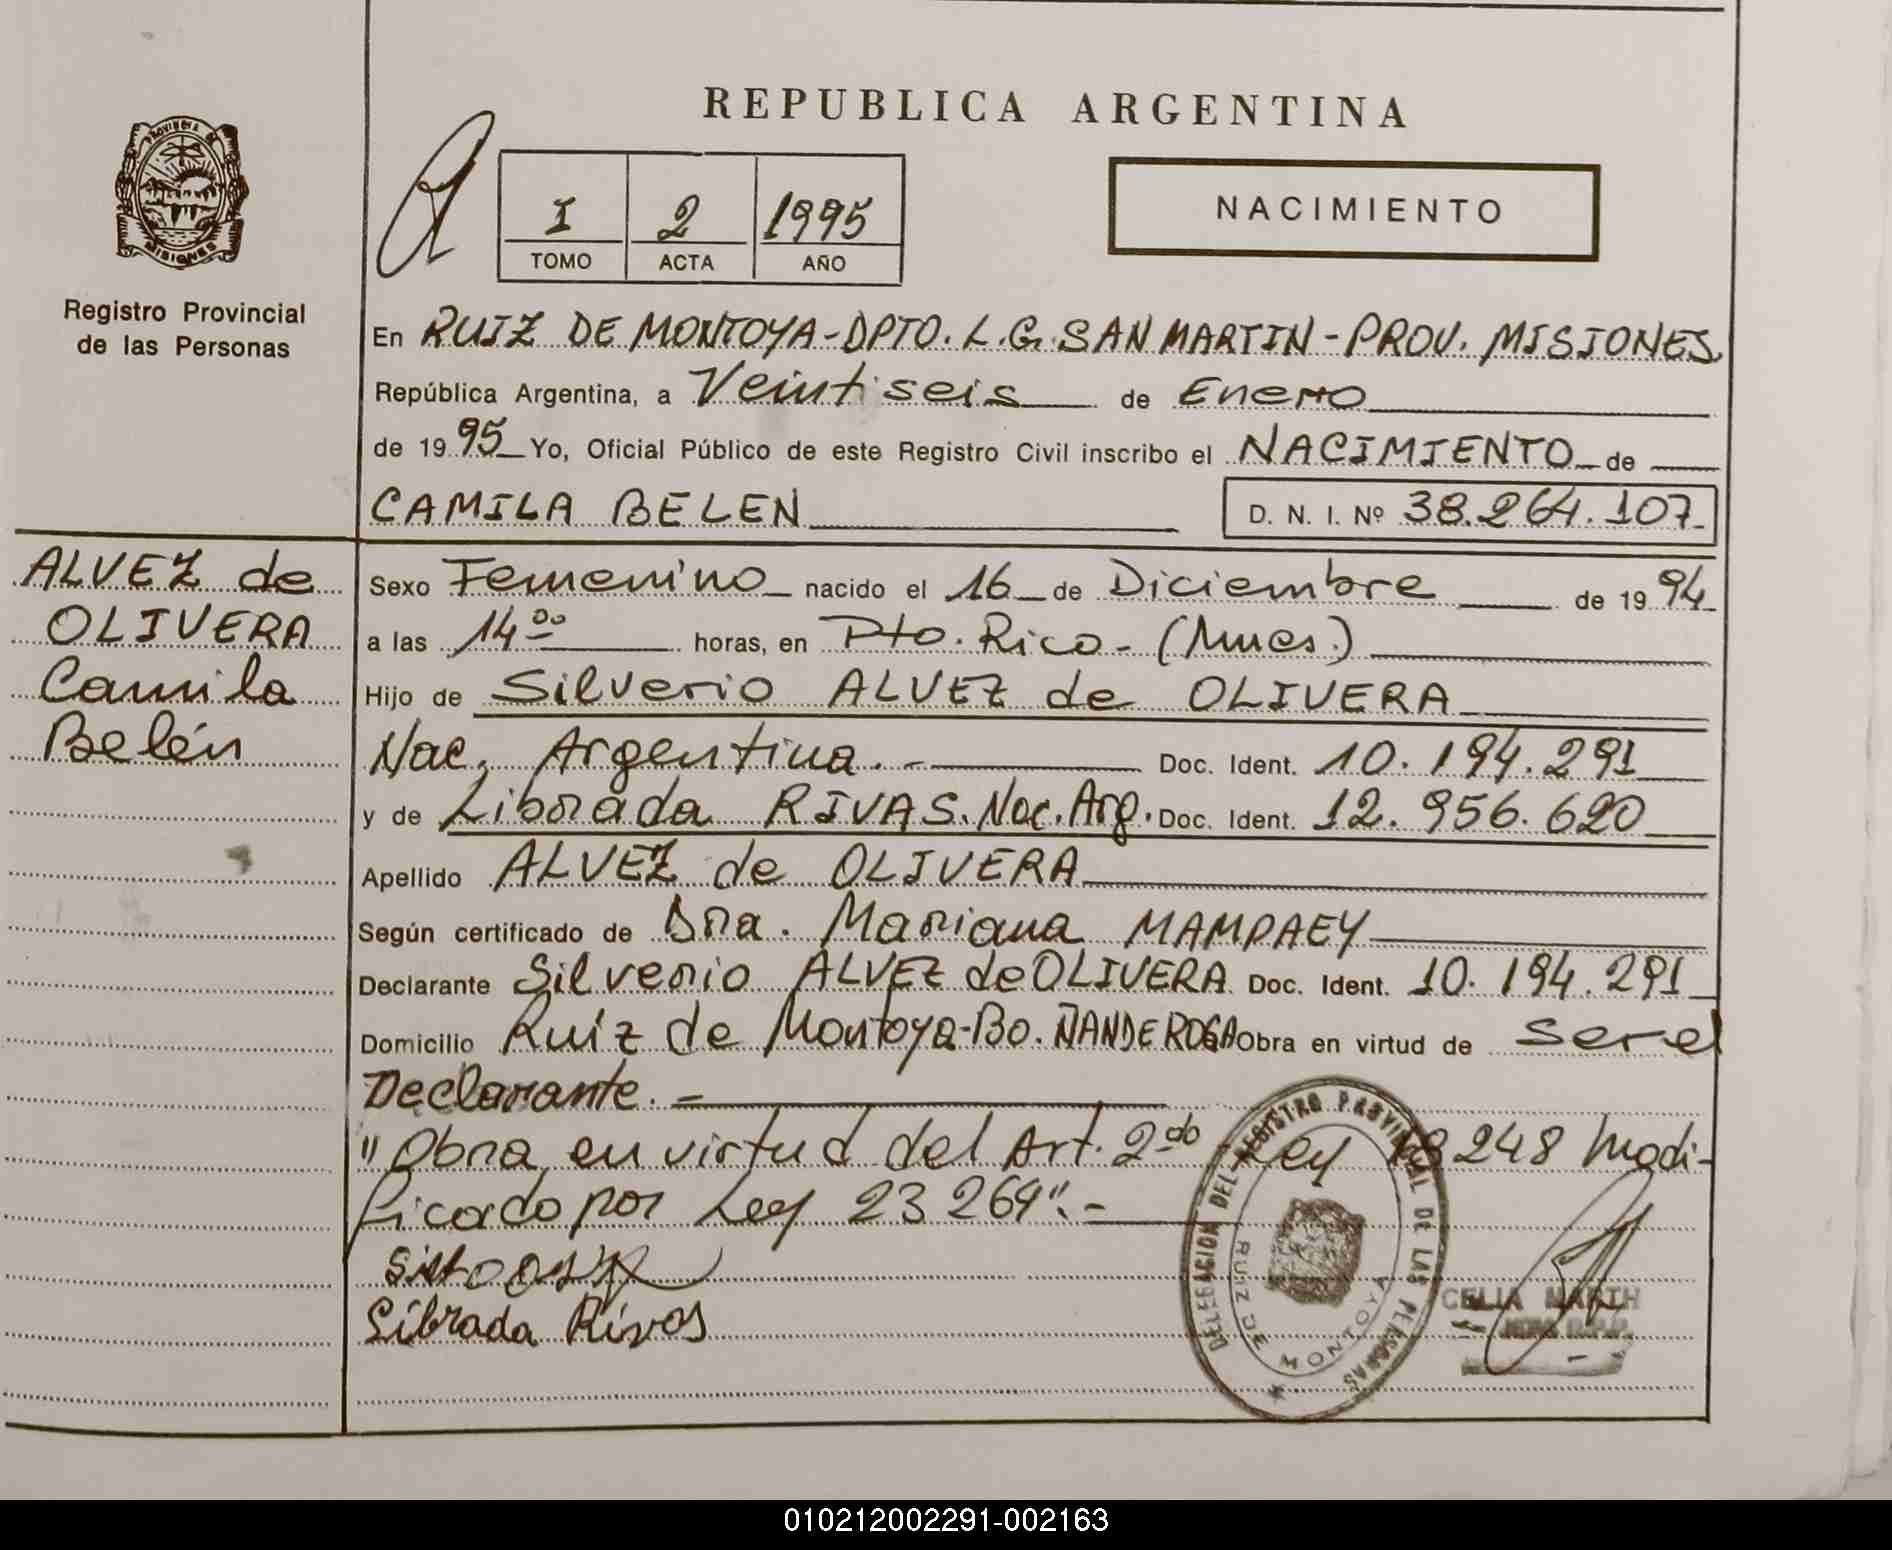 REPUBLICA ARGENTINA
PROVINCIA DE
MISIONES
Registro Provincial
de las Personas
I 2 1995
TOMO ACTA AÑO
NACIMIENTO
En RUIZ DE MONTOYA-DPTO. L.G. SAN MARTIN - PROV. MISIONES
República Argentina, a Veintiseis de Enero
de 1995 Yo, Oficial Público de este Registro Civil inscribo el NACIMIENTO de
CAMILA BELEN D. N. I. Nº 38.264.107
ALVEZ de
OLIVERA
Camila
Belén
Sexo Femenino nacido el 16 de Diciembre de 1994
a las 14 00 horas, en Pto. Rico - (Mnes.)
Hijo de Silverio ALVEZ de OLIVERA
Nac. Argentina. - Doc. Ident. 10.194.291
y de Librada RIVAS. Nac. Arg. Doc. Ident. 12.956.620
Apellido ALVEZ de OLIVERA
Según certificado de Dra. Mariana MAMPAEY
Declarante Silverio ALVEZ de OLIVERA Doc. Ident. 10.194.291
Domicilio Ruiz de Montoya-Bo. ÑANDE ROGA Obra en virtud de ser el
Declarante. -
"Obra en virtud del Art. 2do Ley 18248 modi-
ficado por Ley 23264". -
Librada Rivas
DELEGACION DEL REGISTRO PROVINCIAL DE LAS PERSONAS
RUIZ DE MONTOYA
CELIA
010212002291-002163